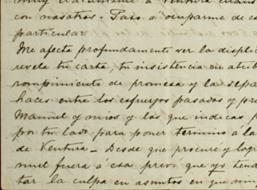 con nosotros. Paso á ocuparme de co
particular.
Me afecta profundamente ver la displi
revela tu carta, tu insistencia en atrib
rompimiento de promesa y la sepa
haces entre los esfuerzos pasados y pre
Manuel y mios y los que indicas p
por tu lado para poner termino á la
de Ventura. Desde que procuré y log
nuel fuera á esa, preví que yo
tar la culpa en asuntos en que